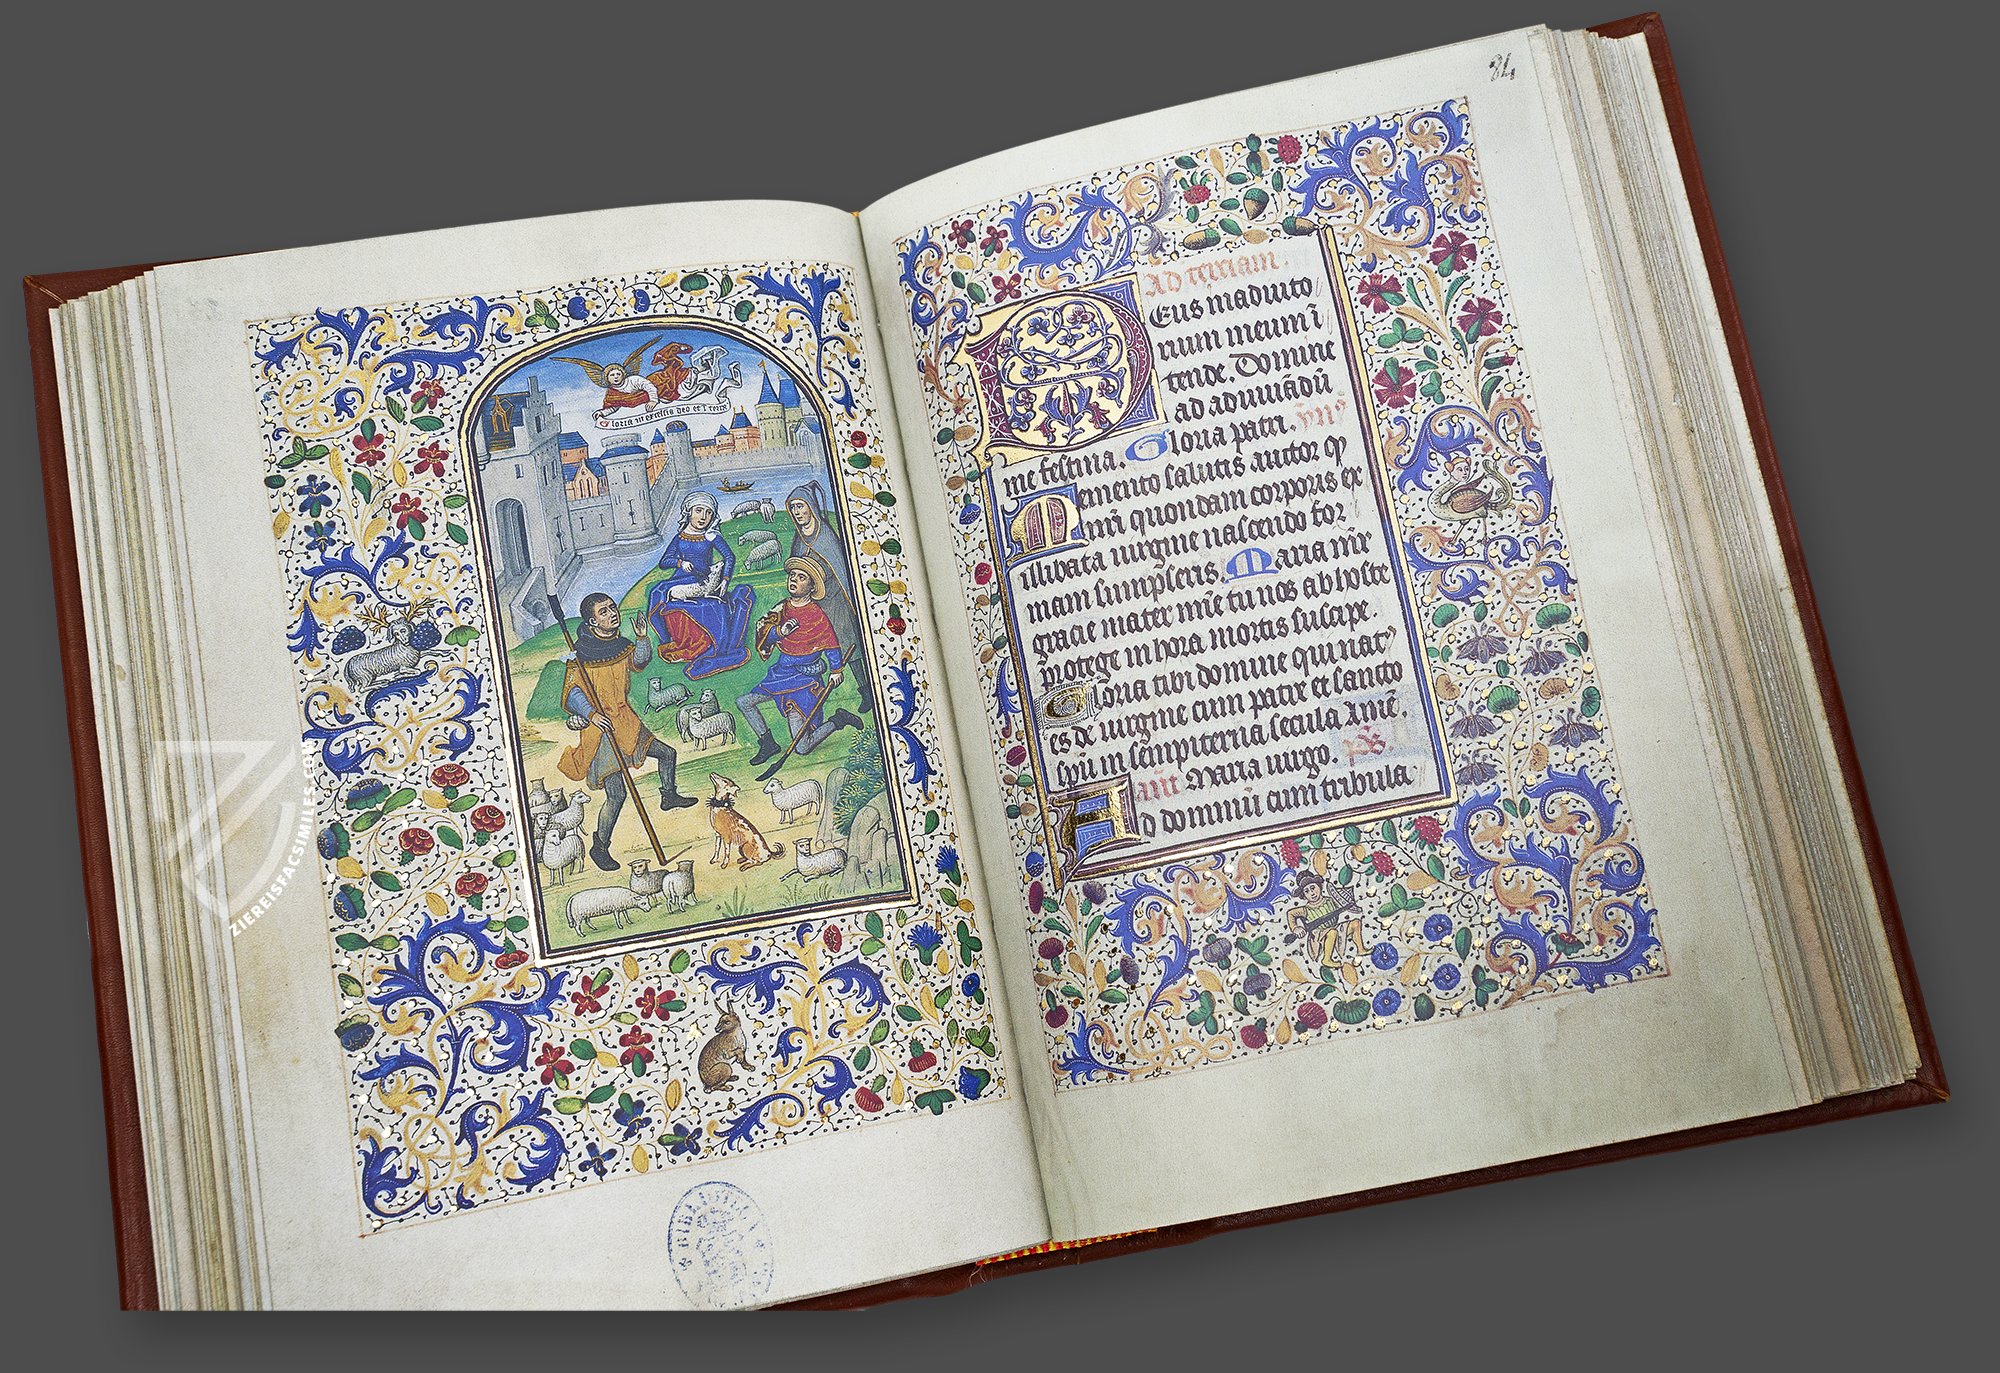 Gloria in excelsis deo et i terre
84
Ad terciam.
Deus in adiuto
rium meum ī
tende. Domine
ad adiuuādū
me festina. Gloria patri. ymꝰ
Memento salutis auctor qꝫ
nr̄i quondam corporis ex
illibata uirgine nascendo for
mam sumpseris. Maria mr̄
gracie mater mīe tu nos ab hoste
protege in hora mortis suscipe.
Gloria tibi domine qui natꝰ
es de uirgine cum patre et sancto
spū in sempiterna secula Amē.
añt Maria uirgo. ps.
Ad dominū cum tribula
ZIEREISFACSIMILES.COM